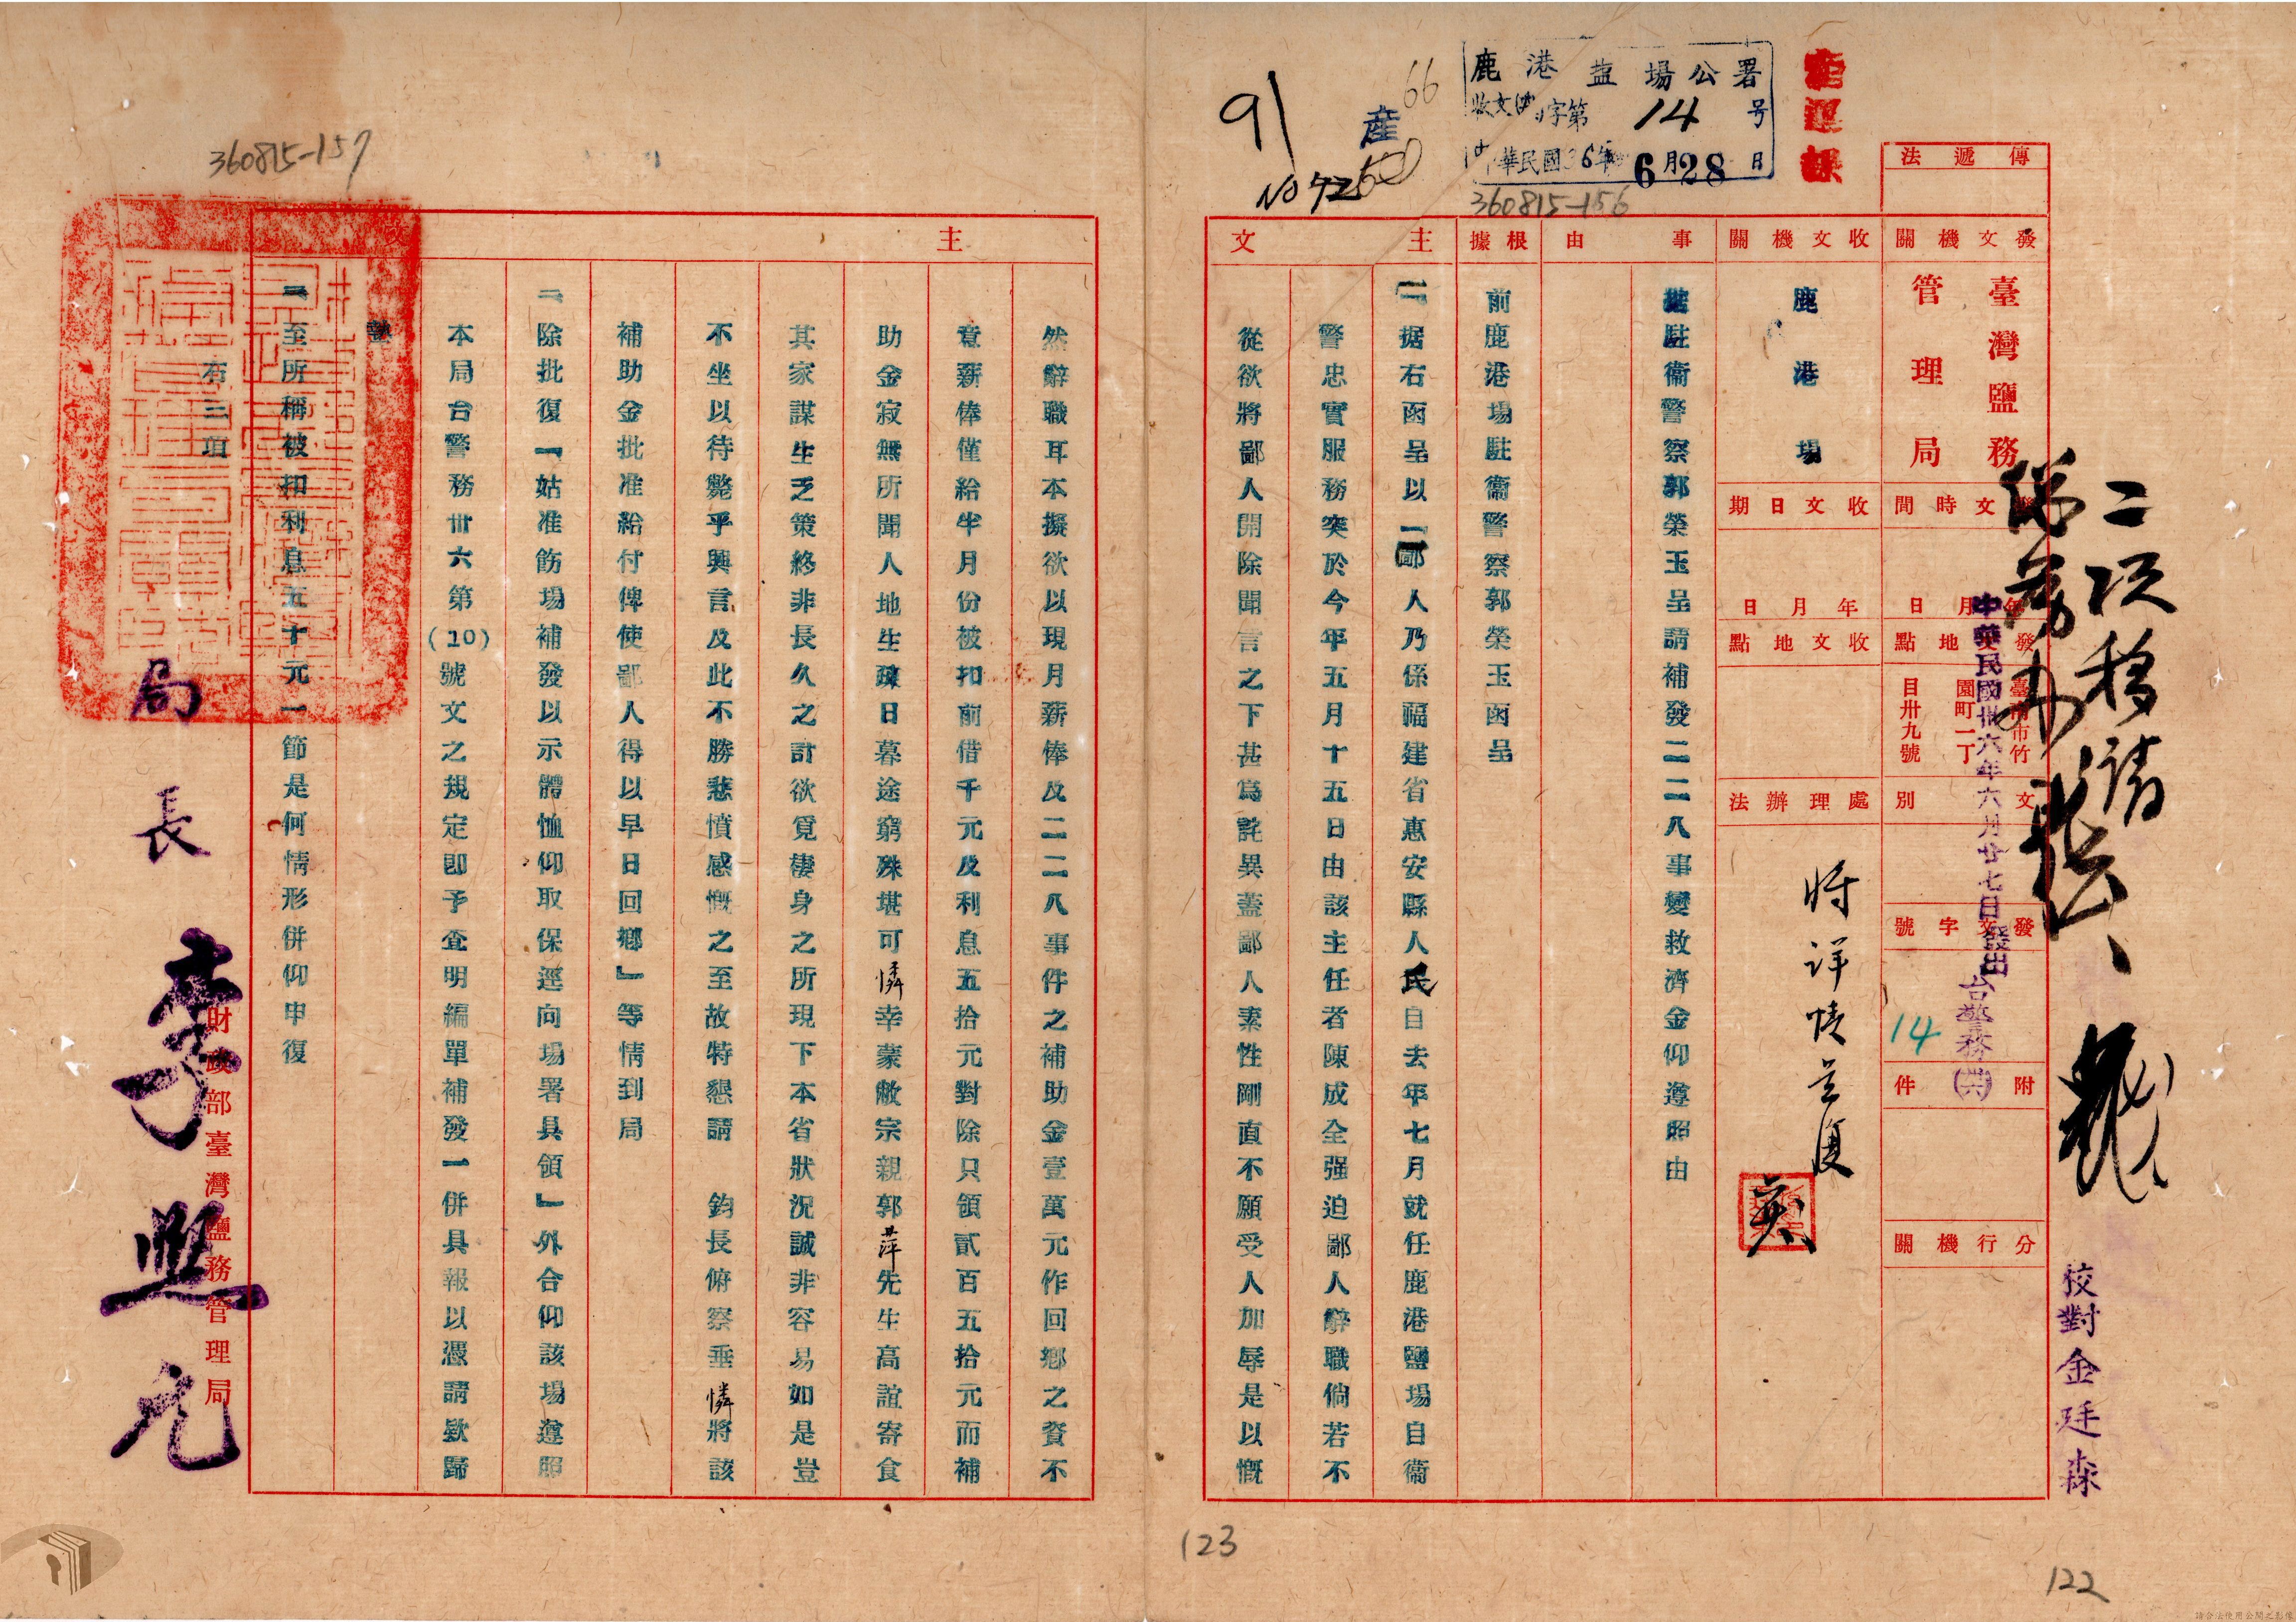 鹿港鹽場公署
收文 字第14号
中華民國36年6月28日
產運課
91
產
66
No 7260
360815-156
傳遞法
發文機關
臺灣鹽務管理局
發文時間
年月日
中華民國卅六年六月廿七日發出
發文地點
臺南市竹園町一丁目卅九號
文別
發文字號
台警務(卅六)
14
附件
分行機關
收文機關
鹿港場
收文日期
年月日
收文地點
處理辦法
將詳情呈復
事由
据駐衛警察郭榮玉呈請補發二二八事變救濟金仰遵照由
根據
前鹿港場駐衛警察郭榮玉函呈
主文
一、据右函呈以「鄙人乃係福建省惠安縣人民自去年七月就任鹿港鹽場自衛
警忠實服務突於今年五月十五日由該主任者陳成全强迫鄙人辭職倘若不
從欲將鄙人開除聞言之下甚為詫異蓋鄙人素性剛直不願受人加辱是以慨
二次移請
校對金廷森
123
122
360815-157
主文
然辭職耳本擬欲以現月薪俸及二二八事件之補助金壹萬元作回鄉之資不
意薪俸僅給半月份被扣前借千元及利息五拾元對除只領貳百五拾元而補
助金寂無所聞人地生疎日暮途窮殊堪可憐幸蒙敝宗親郭萍先生高誼寄食
其家謀生乏策終非長久之計欲覓棲身之所現下本省狀況誠非容易如是豈
不坐以待斃乎興言及此不勝悲憤感慨之至故特懇請 鈞長俯察垂憐將該
補助金批准給付俾使鄙人得以早日回鄉」等情到局
二、除批復「姑准飭場補發以示體恤仰取保逕向場署具領」外合仰該場遵照
本局台警務卅六第(10)號文之規定即予查明編單補發一併具報以憑請欵歸
墊
三、至所稱被扣利息五十元一節是何情形併仰申復
右三項
局長李熙元
財政部臺灣鹽務管理局
請合法使用公開之影像